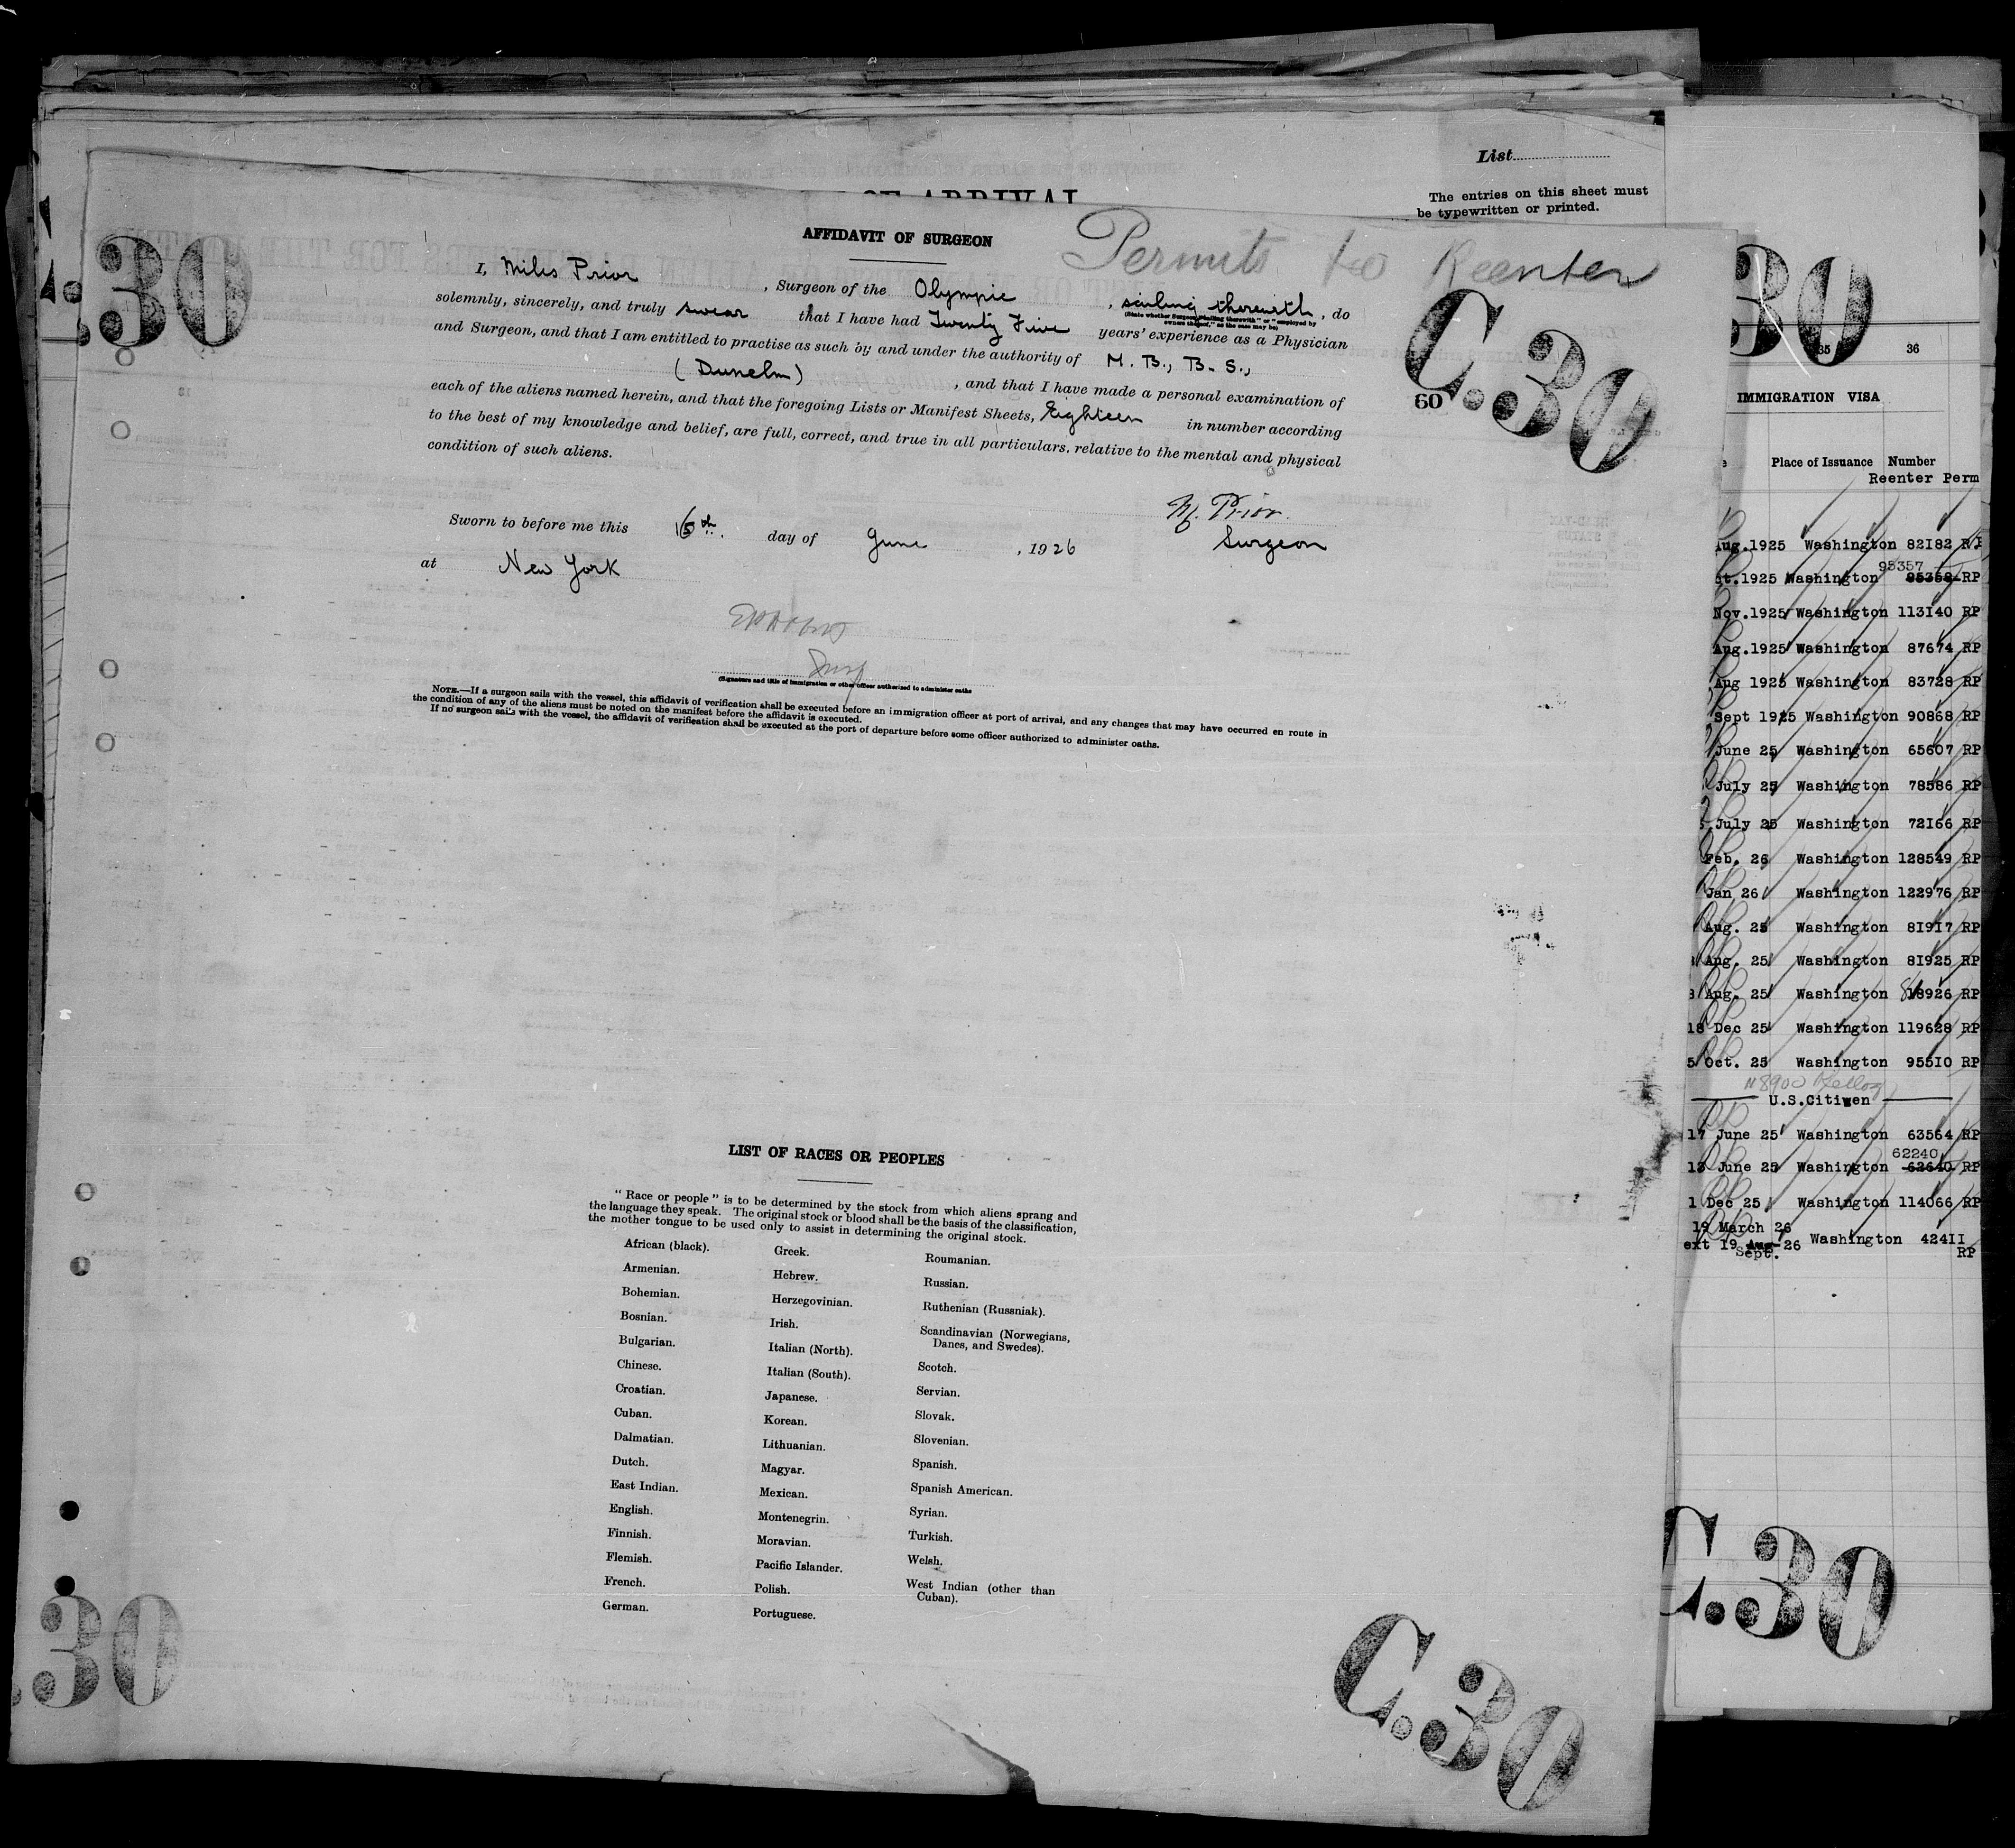 List
The entries on this sheet must
be typewritten or printed.
30
AFFIDAVIT OF SURGEON
Permits to Reenter
I, Miles Prior, Surgeon of the Olympic, sailing therewith, do
(State whether Surgeon "sailing therewith" or "employed by
owners thereof," as the case may be)
solemnly, sincerely, and truly swear that I have had Twenty Five years' experience as a Physician
and Surgeon, and that I am entitled to practise as such by and under the authority of M. B., B. S.,
(Dunelm), and that I have made a personal examination of
each of the aliens named herein, and that the foregoing Lists or Manifest Sheets, Eighteen in number according
to the best of my knowledge and belief, are full, correct, and true in all particulars, relative to the mental and physical
condition of such aliens.
C.30
60
M. Prior.
Surgeon
Sworn to before me this 16th. day of June, 1926
at New York
(Signature and title of immigration or other officer authorized to administer oaths
NOTE.—If a surgeon sails with the vessel, this affidavit of verification shall be executed before an immigration officer at port of arrival, and any changes that may have occurred en route in
the condition of any of the aliens must be noted on the manifest before the affidavit is executed.
If no surgeon sails with the vessel, the affidavit of verification shall be executed at the port of departure before some officer authorized to administer oaths.
LIST OF RACES OR PEOPLES
" Race or people " is to be determined by the stock from which aliens sprang and
the language they speak. The original stock or blood shall be the basis of the classification,
the mother tongue to be used only to assist in determining the original stock.
African (black).
Armenian.
Bohemian.
Bosnian.
Bulgarian.
Chinese.
Croatian.
Cuban.
Dalmatian.
Dutch.
East Indian.
English.
Finnish.
Flemish.
French.
German.
Greek.
Hebrew.
Herzegovinian.
Irish.
Italian (North).
Italian (South).
Japanese.
Korean.
Lithuanian.
Magyar.
Mexican.
Montenegrin.
Moravian.
Pacific Islander.
Polish.
Portuguese.
Roumanian.
Russian.
Ruthenian (Russniak).
Scandinavian (Norwegians,
Danes, and Swedes).
Scotch.
Servian.
Slovak.
Slovenian.
Spanish.
Spanish American.
Syrian.
Turkish.
Welsh.
West Indian (other than
Cuban).
30
C.30
30
35 36
IMMIGRATION VISA
Place of Issuance Number
Reenter Perm
Aug.1925 Washington 82182 R.P
95357
ct.1925 Washington 95358 RP
Nov.1925 Washington 113140 RP
Aug.1925 Washington 87674 RP
Aug 1925 Washington 83728 RP
Sept 1925 Washington 90868 RP
June 25 Washington 65607 RP
July 25 Washington 78586 RP
July 25 Washington 72166 RP
Feb. 26 Washington 128549 RP
Jan 26 Washington 122976 RP
Aug. 25 Washington 81917 RP
Aug. 25 Washington 81925 RP
Aug. 25 Washington 81926 RP
18 Dec 25 Washington 119628 RP
5 Oct. 25 Washington 95510 RP
118900 Kellog
U.S.Citizen
17 June 25 Washington 63564 RP
62240
12 June 25 Washington 62640 RP
1 Dec 25 Washington 114066 RP
19 March 26
ext 19 Aug 26 Washington 42411
Sept. RP
C.30